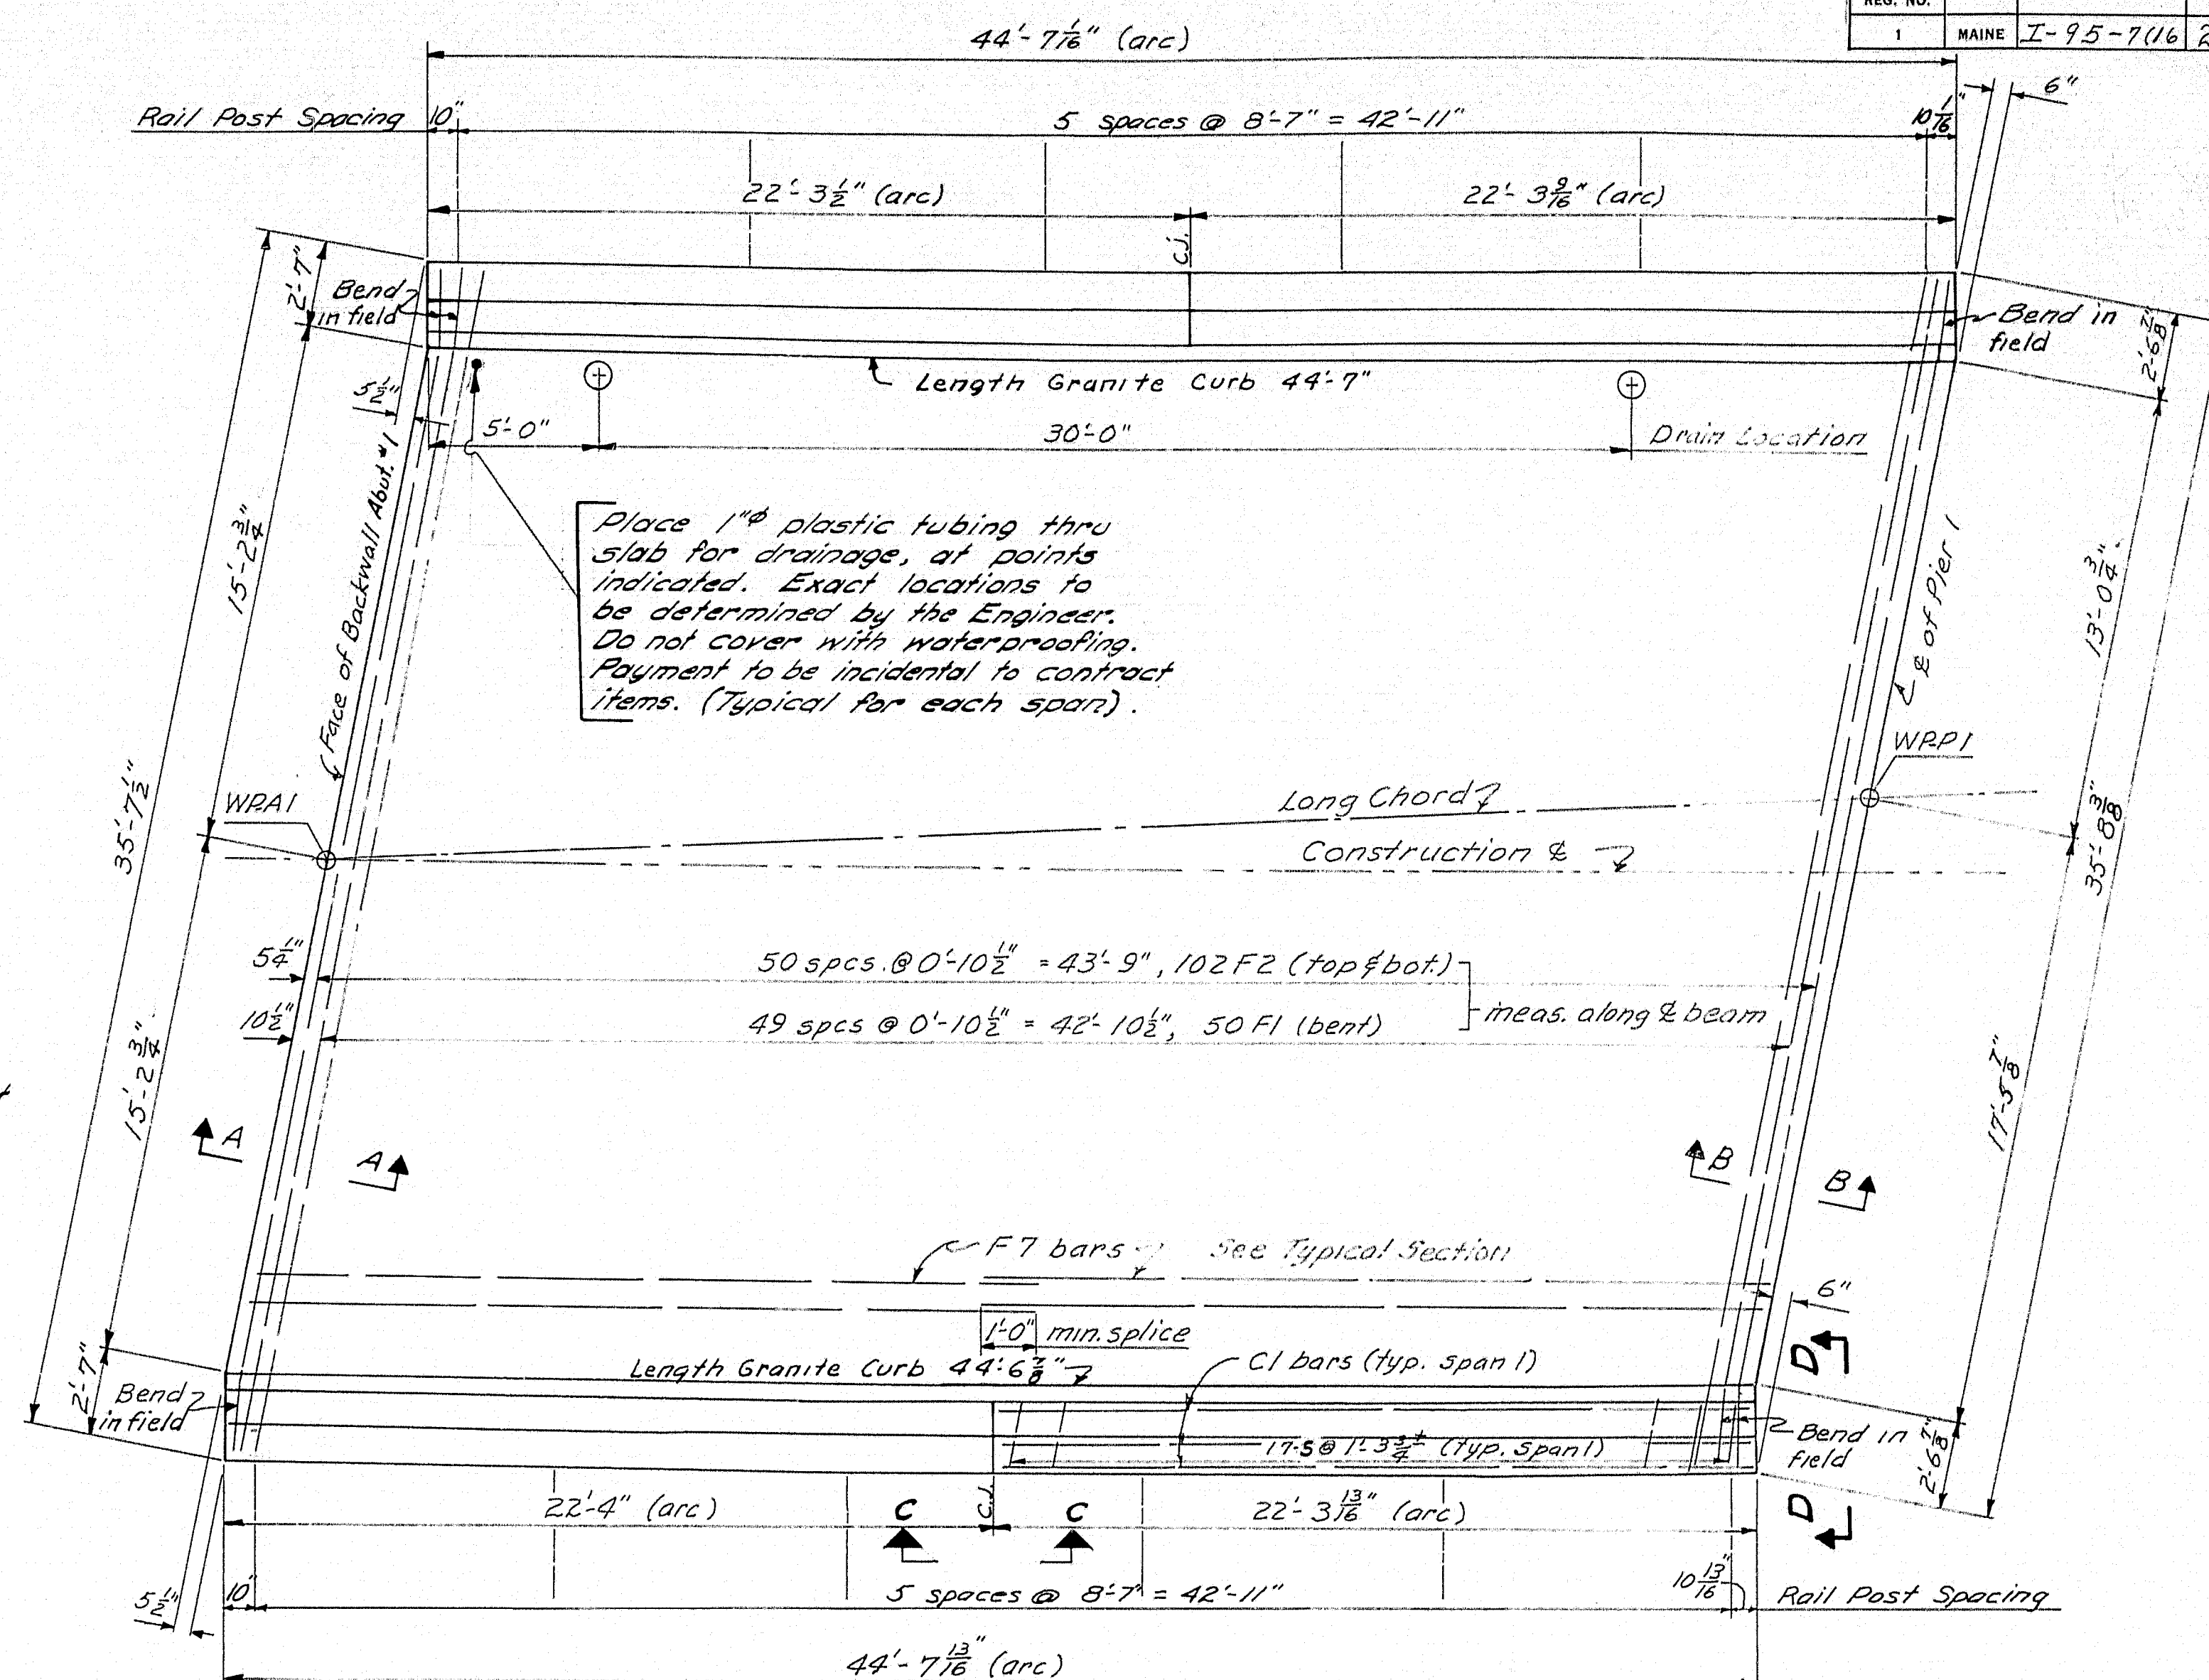 REG. NO.
1 MAINE I-95-7(16 2
44'-7 1/16" (arc)
6"
Rail Post Spacing 10" 5 spaces @ 8'-7" = 42'-11" 10 1/16"
22'-3 1/2" (arc) 22'-3 9/16" (arc)
C.J.
2'-7"
Bend
in field
Bend in
field
2'-6 7/8"
Length Granite Curb 44'-7"
5 1/2"
5'-0" 30'-0" Drain Location
Place 1"ϕ plastic tubing thru
slab for drainage, at points
indicated. Exact locations to
be determined by the Engineer.
Do not cover with waterproofing.
Payment to be incidental to contract
items. (Typical for each span).
15'-2 3/4"
Face of Backwall Abut. #1
℄ of Pier 1
13'-0 3/4"
35'-7 1/2"
W.P.A1
W.P.P1
Long Chord
Construction ℄
35'-8 3/8"
5 1/4" 50 spcs. @ 0'-10 1/2" = 43'-9", 102 F2 (top & bot.)
10 1/2" 49 spcs @ 0'-10 1/2" = 42'-10 1/2", 50 F1 (bent)
meas. along ℄ beam
15'-2 3/4"
17'-5 7/8"
A A B B
F7 bars See Typical Section
6"
1'-0" min. splice
D
Length Granite Curb 44'-6 7/8" C1 bars (typ. span 1)
2'-7"
Bend
in field
17-S @ 1'-3 3/4"± (typ. span 1)
Bend in
field
2'-6 7/8"
22'-4" (arc) C C.J. C 22'-3 13/16" (arc)
D
5 1/2" 10" 5 spaces @ 8'-7" = 42'-11" 10 13/16" Rail Post Spacing
44'-7 13/16" (arc)